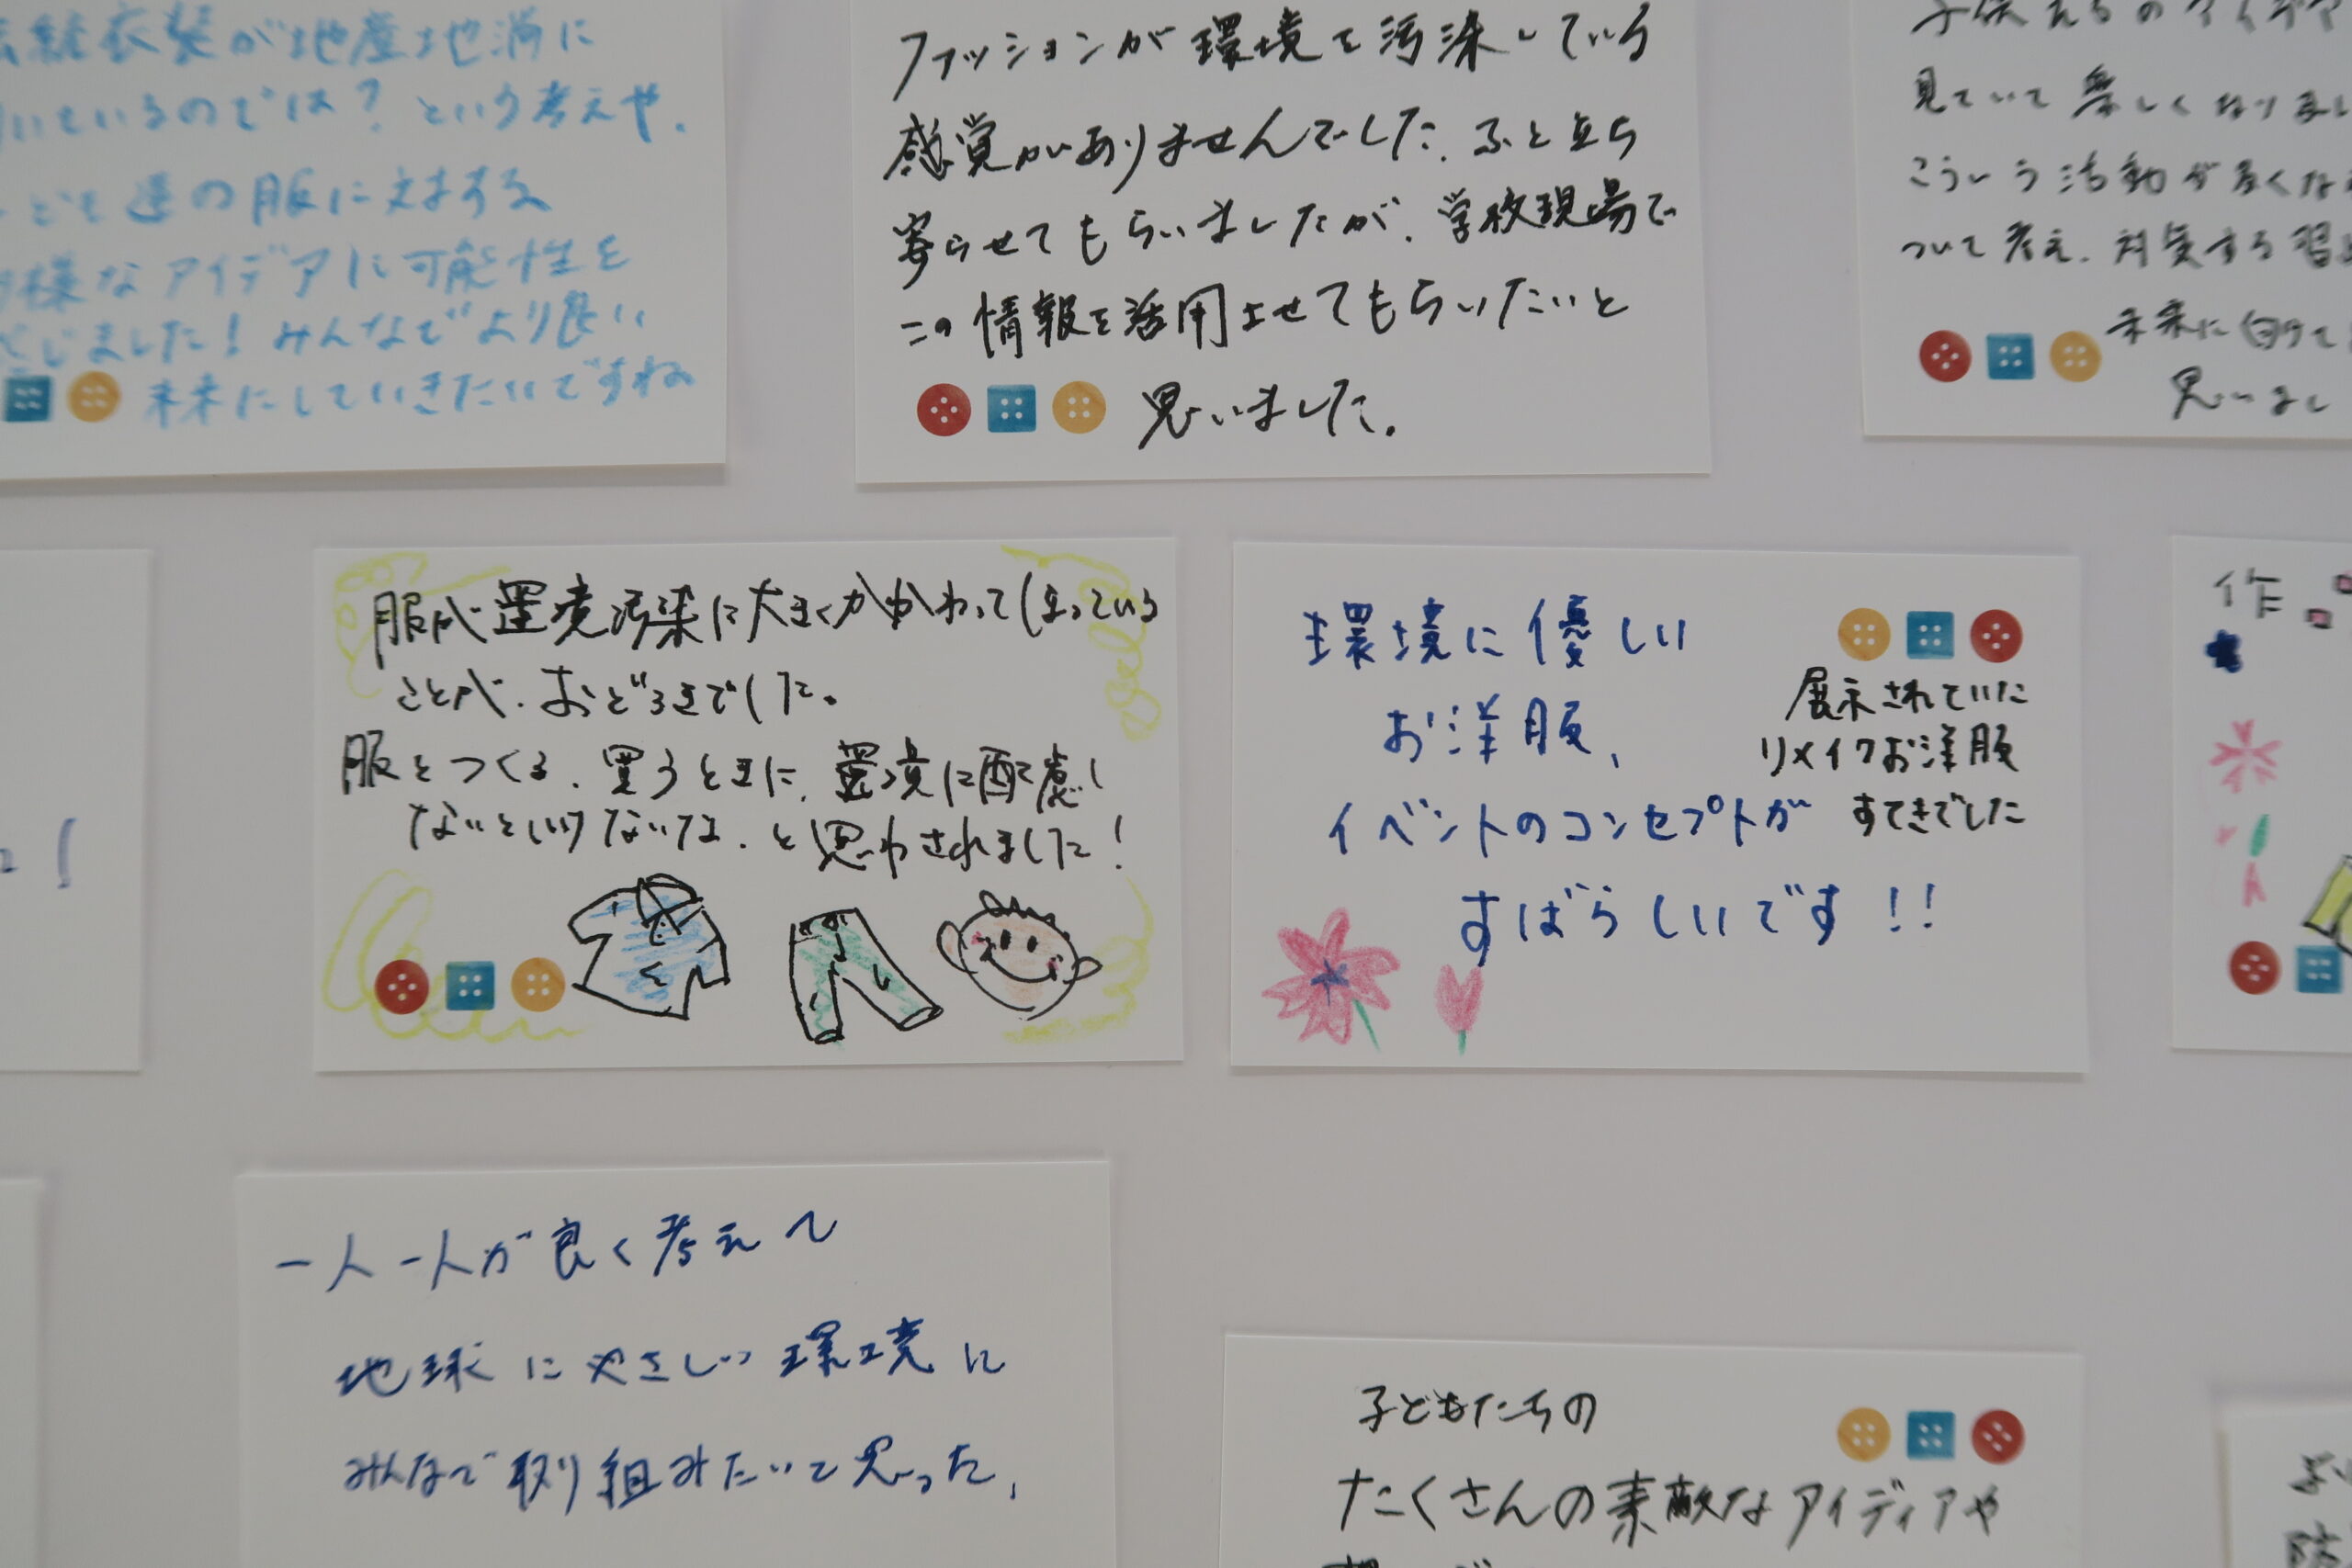 統衣裳が地産地消に
いているのでは?という考えや、
ども達の服に対する
様なアイデアに可能性を
じました!みんなでより良い
未来にしていきたいですね
ファッションが環境を汚染している
感覚がありませんでした。ふと立ち
寄らせてもらいましたが、学校現場で
この情報を活用させてもらいたいと
思いました。
見ていて楽しくなりまし
こういう活動が多くな
ついて考え、対策する習
未来に向けて
思いまし
服が環境汚染に大きくかかわってしまっている
ことが、おどろきでした。
服をつくる、買うときに、環境に配慮し
ないといけないな、と思わされました!
環境に優しい
お洋服、
イベントのコンセプトが
すばらしいです!!
展示されていた
リメイクお洋服
すてきでした
作
!
一人一人が良く考えて
地球にやさしい環境に
みんなで取り組みたいと思った。
子どもたちの
たくさんの素敵なアイディアや